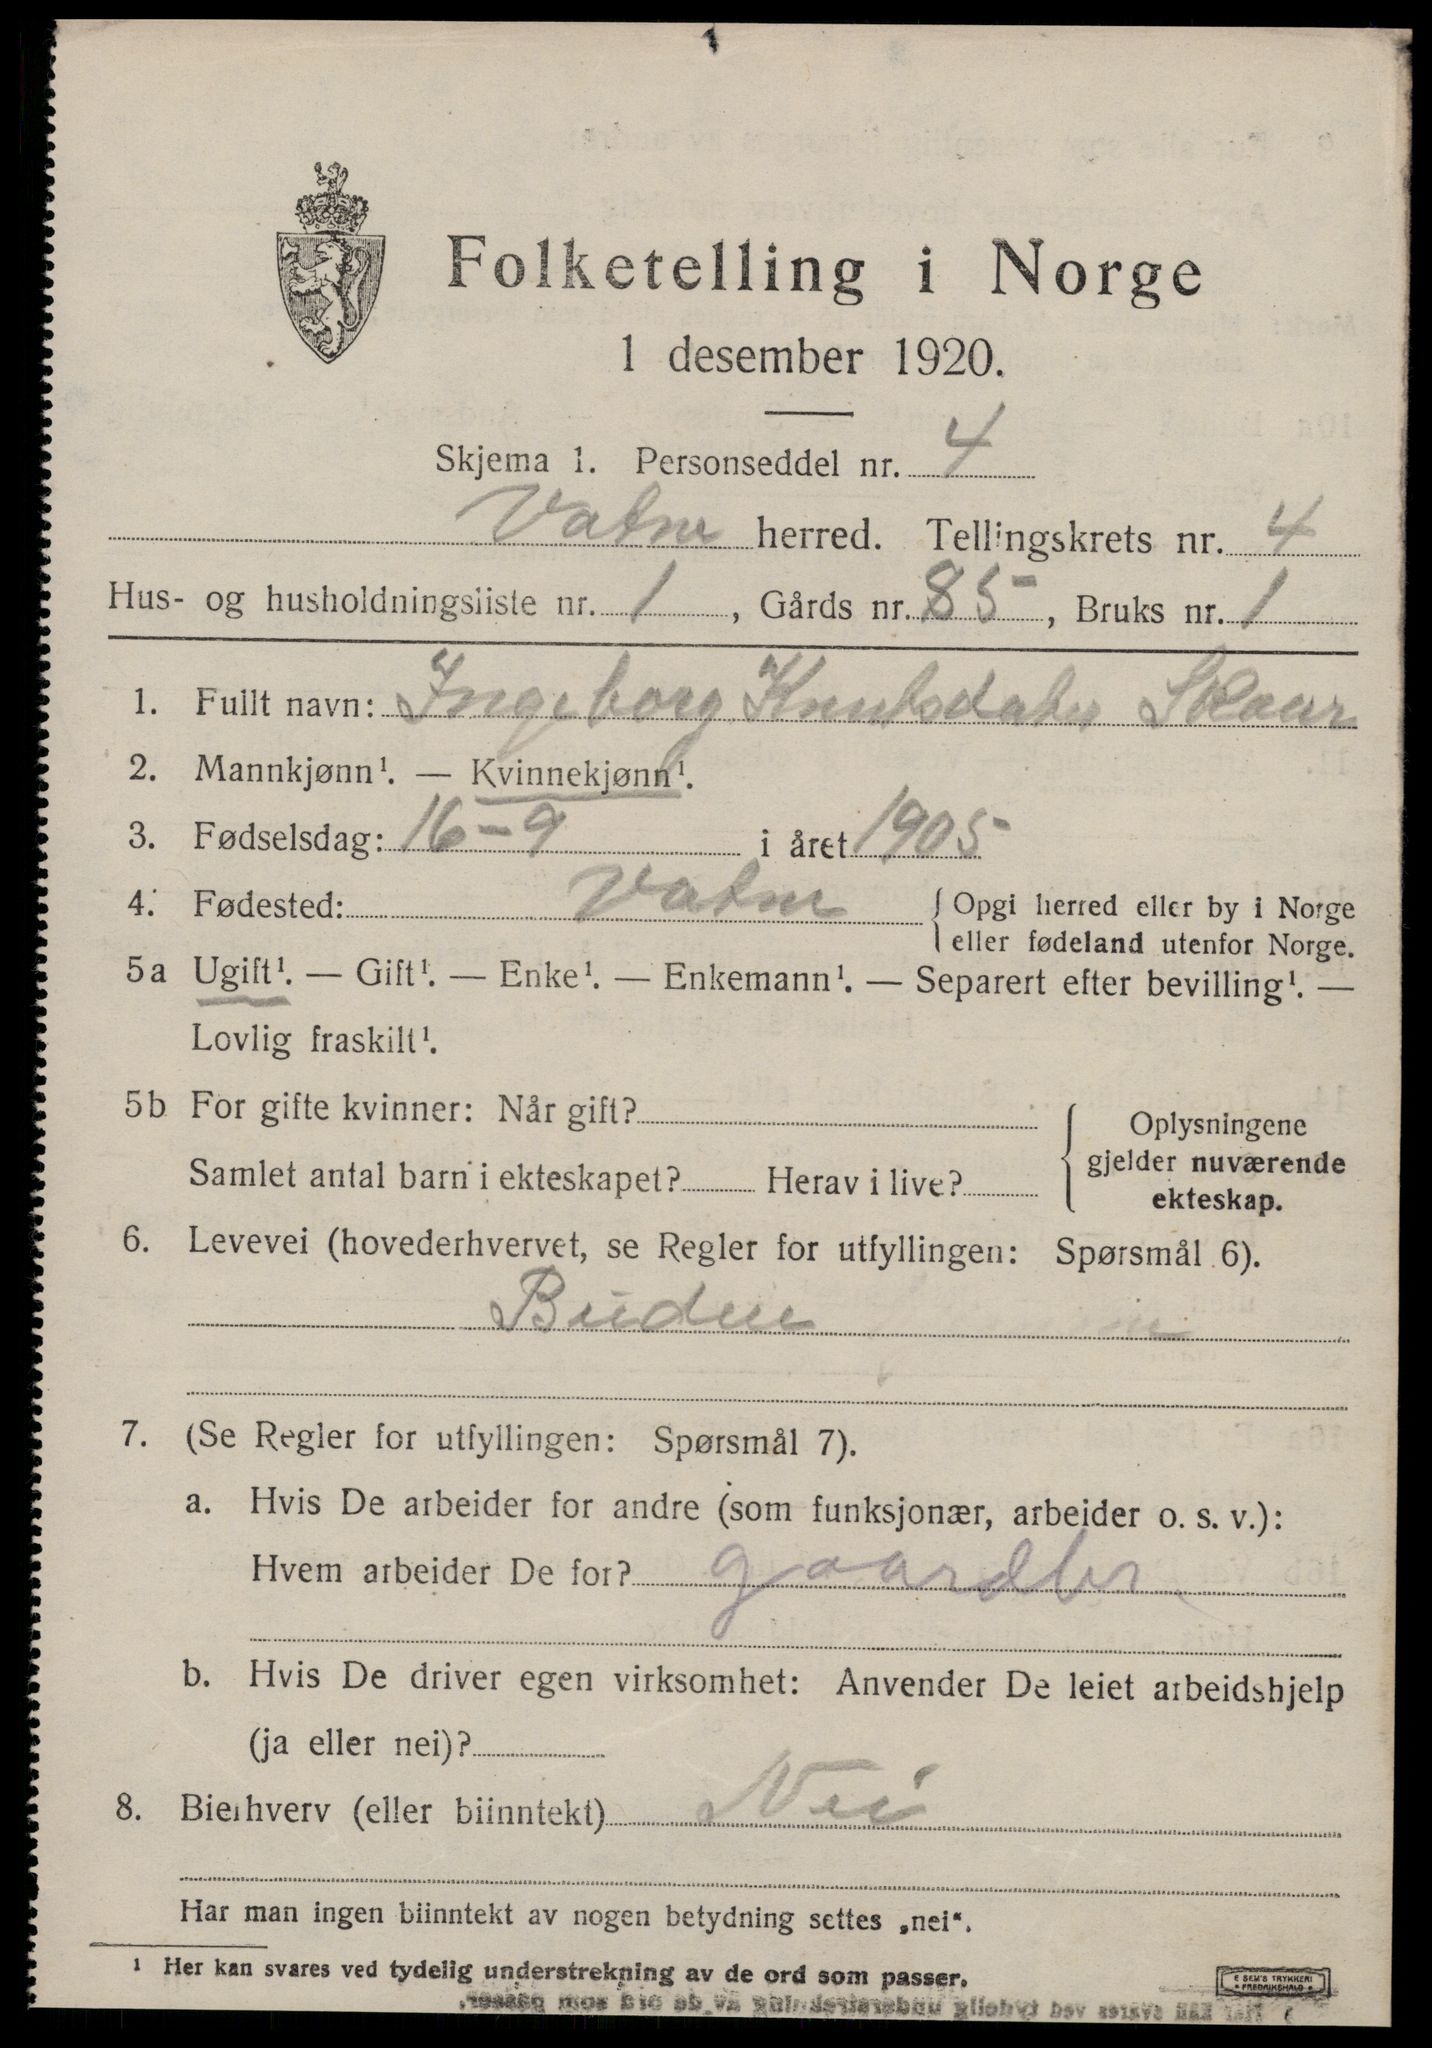 Folketelling i Norge
1 desember 1920.
Skjema 1. Personseddel nr. 4
Vatne herred. Tellingskrets nr. 4
Hus- og husholdningsliste nr. 1, Gårds nr. 85, Bruks nr. 1
1. Fullt navn: Ingeborg Knutsdatter Skaar
2. Mannkjønn¹. — Kvinnekjønn¹.
3. Fødselsdag: 16-9 i året 1905
4. Fødested: Vatne { Opgi herred eller by i Norge
eller fødeland utenfor Norge.
5a Ugift¹. — Gift¹. — Enke¹. — Enkemann¹. — Separert efter bevilling¹. —
Lovlig fraskilt¹.
5b For gifte kvinner: Når gift?
Samlet antal barn i ekteskapet? Herav i live?
Oplysningene
gjelder nuværende
ekteskap.
6. Levevei (hovederhvervet, se Regler for utfyllingen: Spørsmål 6).
Budeie
7. (Se Regler for utfyllingen: Spørsmål 7).
a. Hvis De arbeider for andre (som funksjonær, arbeider o. s. v.):
Hvem arbeider De for? gaardbr.
b. Hvis De driver egen virksomhet: Anvender De leiet arbeidshjelp
(ja eller nei)?
8. Bierhverv (eller biinntekt) Nei
Har man ingen biinntekt av nogen betydning settes „nei“.
¹ Her kan svares ved tydelig understrekning av de ord som passer.
E SEM'S TRYKKERI
FREDRIKSHALD